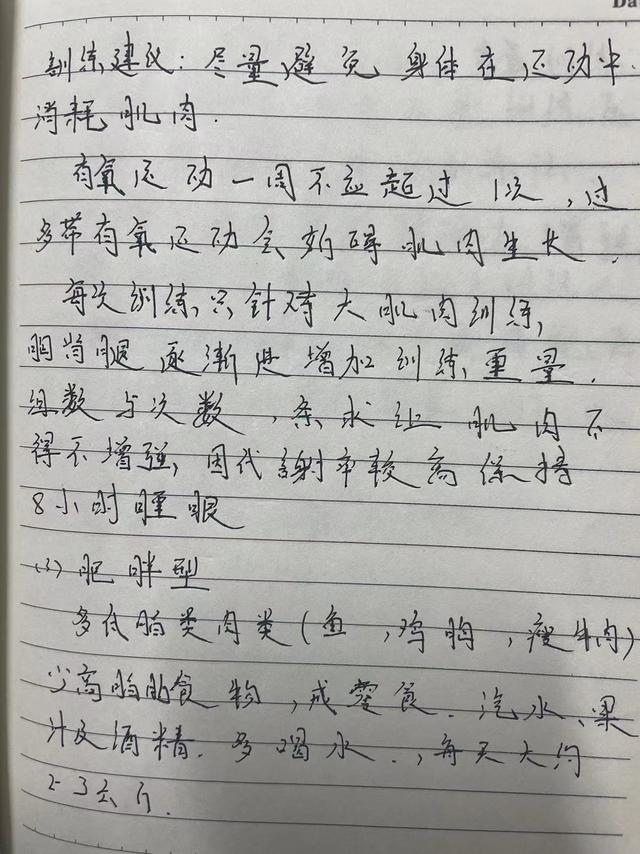 Da
训练建议：尽量避免身体在运动中
消耗肌肉.
有氧运动一周不应超过1次，过
多带有氧运动会妨碍肌肉生长.
每次训练，只针对大肌肉训练，
胸背腿逐渐地增加训练重量.
组数与次数，来求让肌肉不
得不增强，因代谢率较高保持
8小时睡眠
(3)肥胖型
多低脂类肉类(鱼，鸡胸，瘦牛肉)
少高脂肪食物，戒零食.汽水、果
汁及酒精.多喝水.，每天大约
2-3公斤.